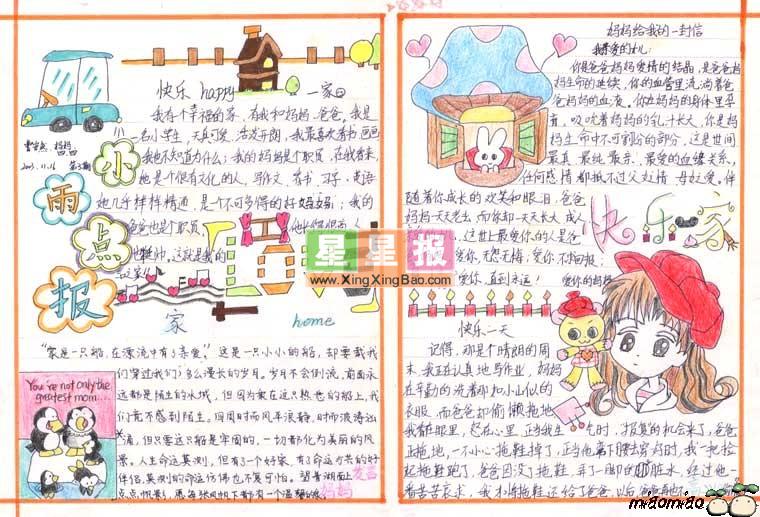 快乐 happy 一家
我有个幸福的家，有我和妈妈、爸爸。我是
一名小学生，天真可爱，活泼开朗，我最喜欢看书、画画
我也不知道为什么；我的妈妈是个职员，在我看来，
她是个很有文化的人，写作文、看书、习字、英语
她几乎样样精通，是个不可多得的好妈妈；我的
爸爸也是个职员，
这就是我的
小
雨
点
报
2003.11.16 第3期
星星报
www.XingXingBao.com
家 home
“家是一只船，在漂流中有了亲爱”。这是一只小小的船，却要载我
们穿过我们）多么漫长的岁月。岁月不会倒流，前面永
远都是陌生的水域，但因为乘在这只熟悉的船上，我
们竟不感到陌生。四周时而风平浪静，时而波涛汹
涌，但只要这只船是牢固的，一切都化为美丽的风
景。人生命运莫测，但有了一个好家，有了命运与共的好
伴侣，莫测的命运仿佛也不复可怕。望着湖面上
点点帆影，愿每张风帆下都有一个温馨的家。
妈妈
You're not only the
greatest mom...
妈妈给我的一封信
你是爸爸妈妈爱情的结晶，是爸爸妈
妈生命的延续，你的血管里流淌着爸
爸妈妈的血液，你在妈妈的身体里孕
育，吸吮着妈妈的乳汁长大，你是妈
妈生命中不可割分的部分，这是世间
最真、最纯、最亲、最爱的血缘关系，
任何感情都抵不过父女情、母女爱，伴
随着你成长的欢笑和眼泪，爸爸
妈妈一天天老去，而你却一天天长大成人
这世上最爱你的人是爸
爱你，无怨无悔；爱你，不图回报；
爱你，直到永远！ 爱你的妈妈
快乐一家
快乐一天
记得，那是个晴朗的周
末，我正在认真地写作业，妈妈
在辛勤的洗着那和小山似的
衣服，而爸爸却偷懒拖地
我都在眼里，怒在心里，正当我生气时，报复的机会来了，爸爸
正拖地，一不小心拖鞋掉了，正当他弯下腰去穿的时，我一把捡
起拖鞋跑了，爸爸因没了拖鞋，弄了一脚的脏水，经过他一
番苦苦哀求，我才将拖鞋还给了爸爸，以后爸爸再也不
miaomiao